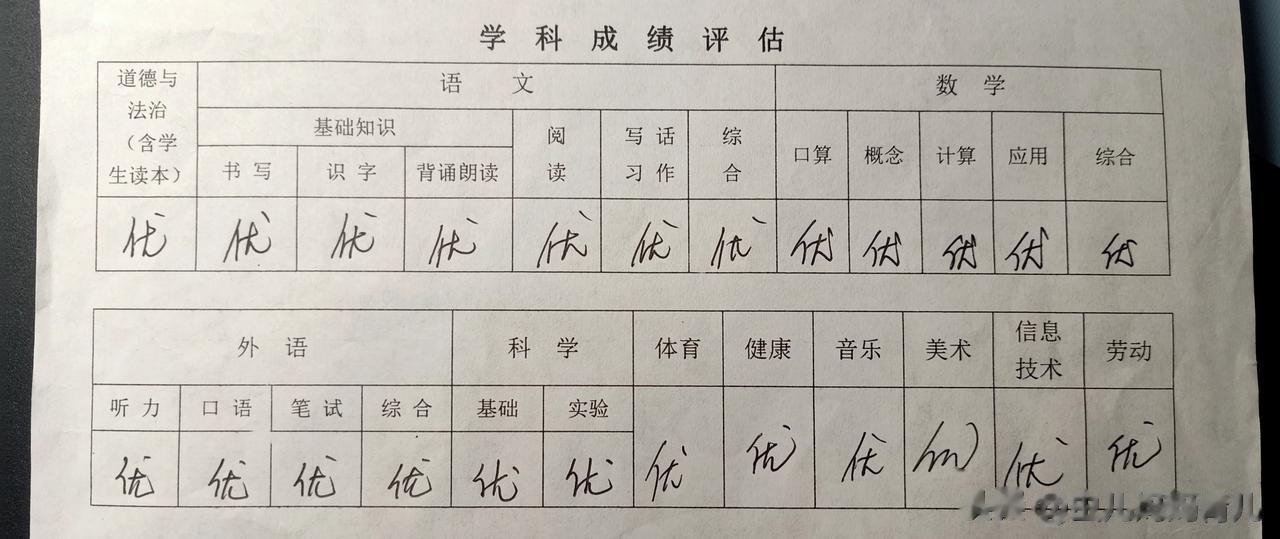 学科成绩评估
道德与法治（含学生读本） 语文 数学
基础知识 阅读 写话习作 综合 口算 概念 计算 应用 综合
书写 识字 背诵朗读
优 优 优 优 优 优 优 优 优 优 优 优
外语 科学 体育 健康 音乐 美术 信息技术 劳动
听力 口语 笔试 综合 基础 实验
优 优 优 优 优 优 优 优 优 优 优